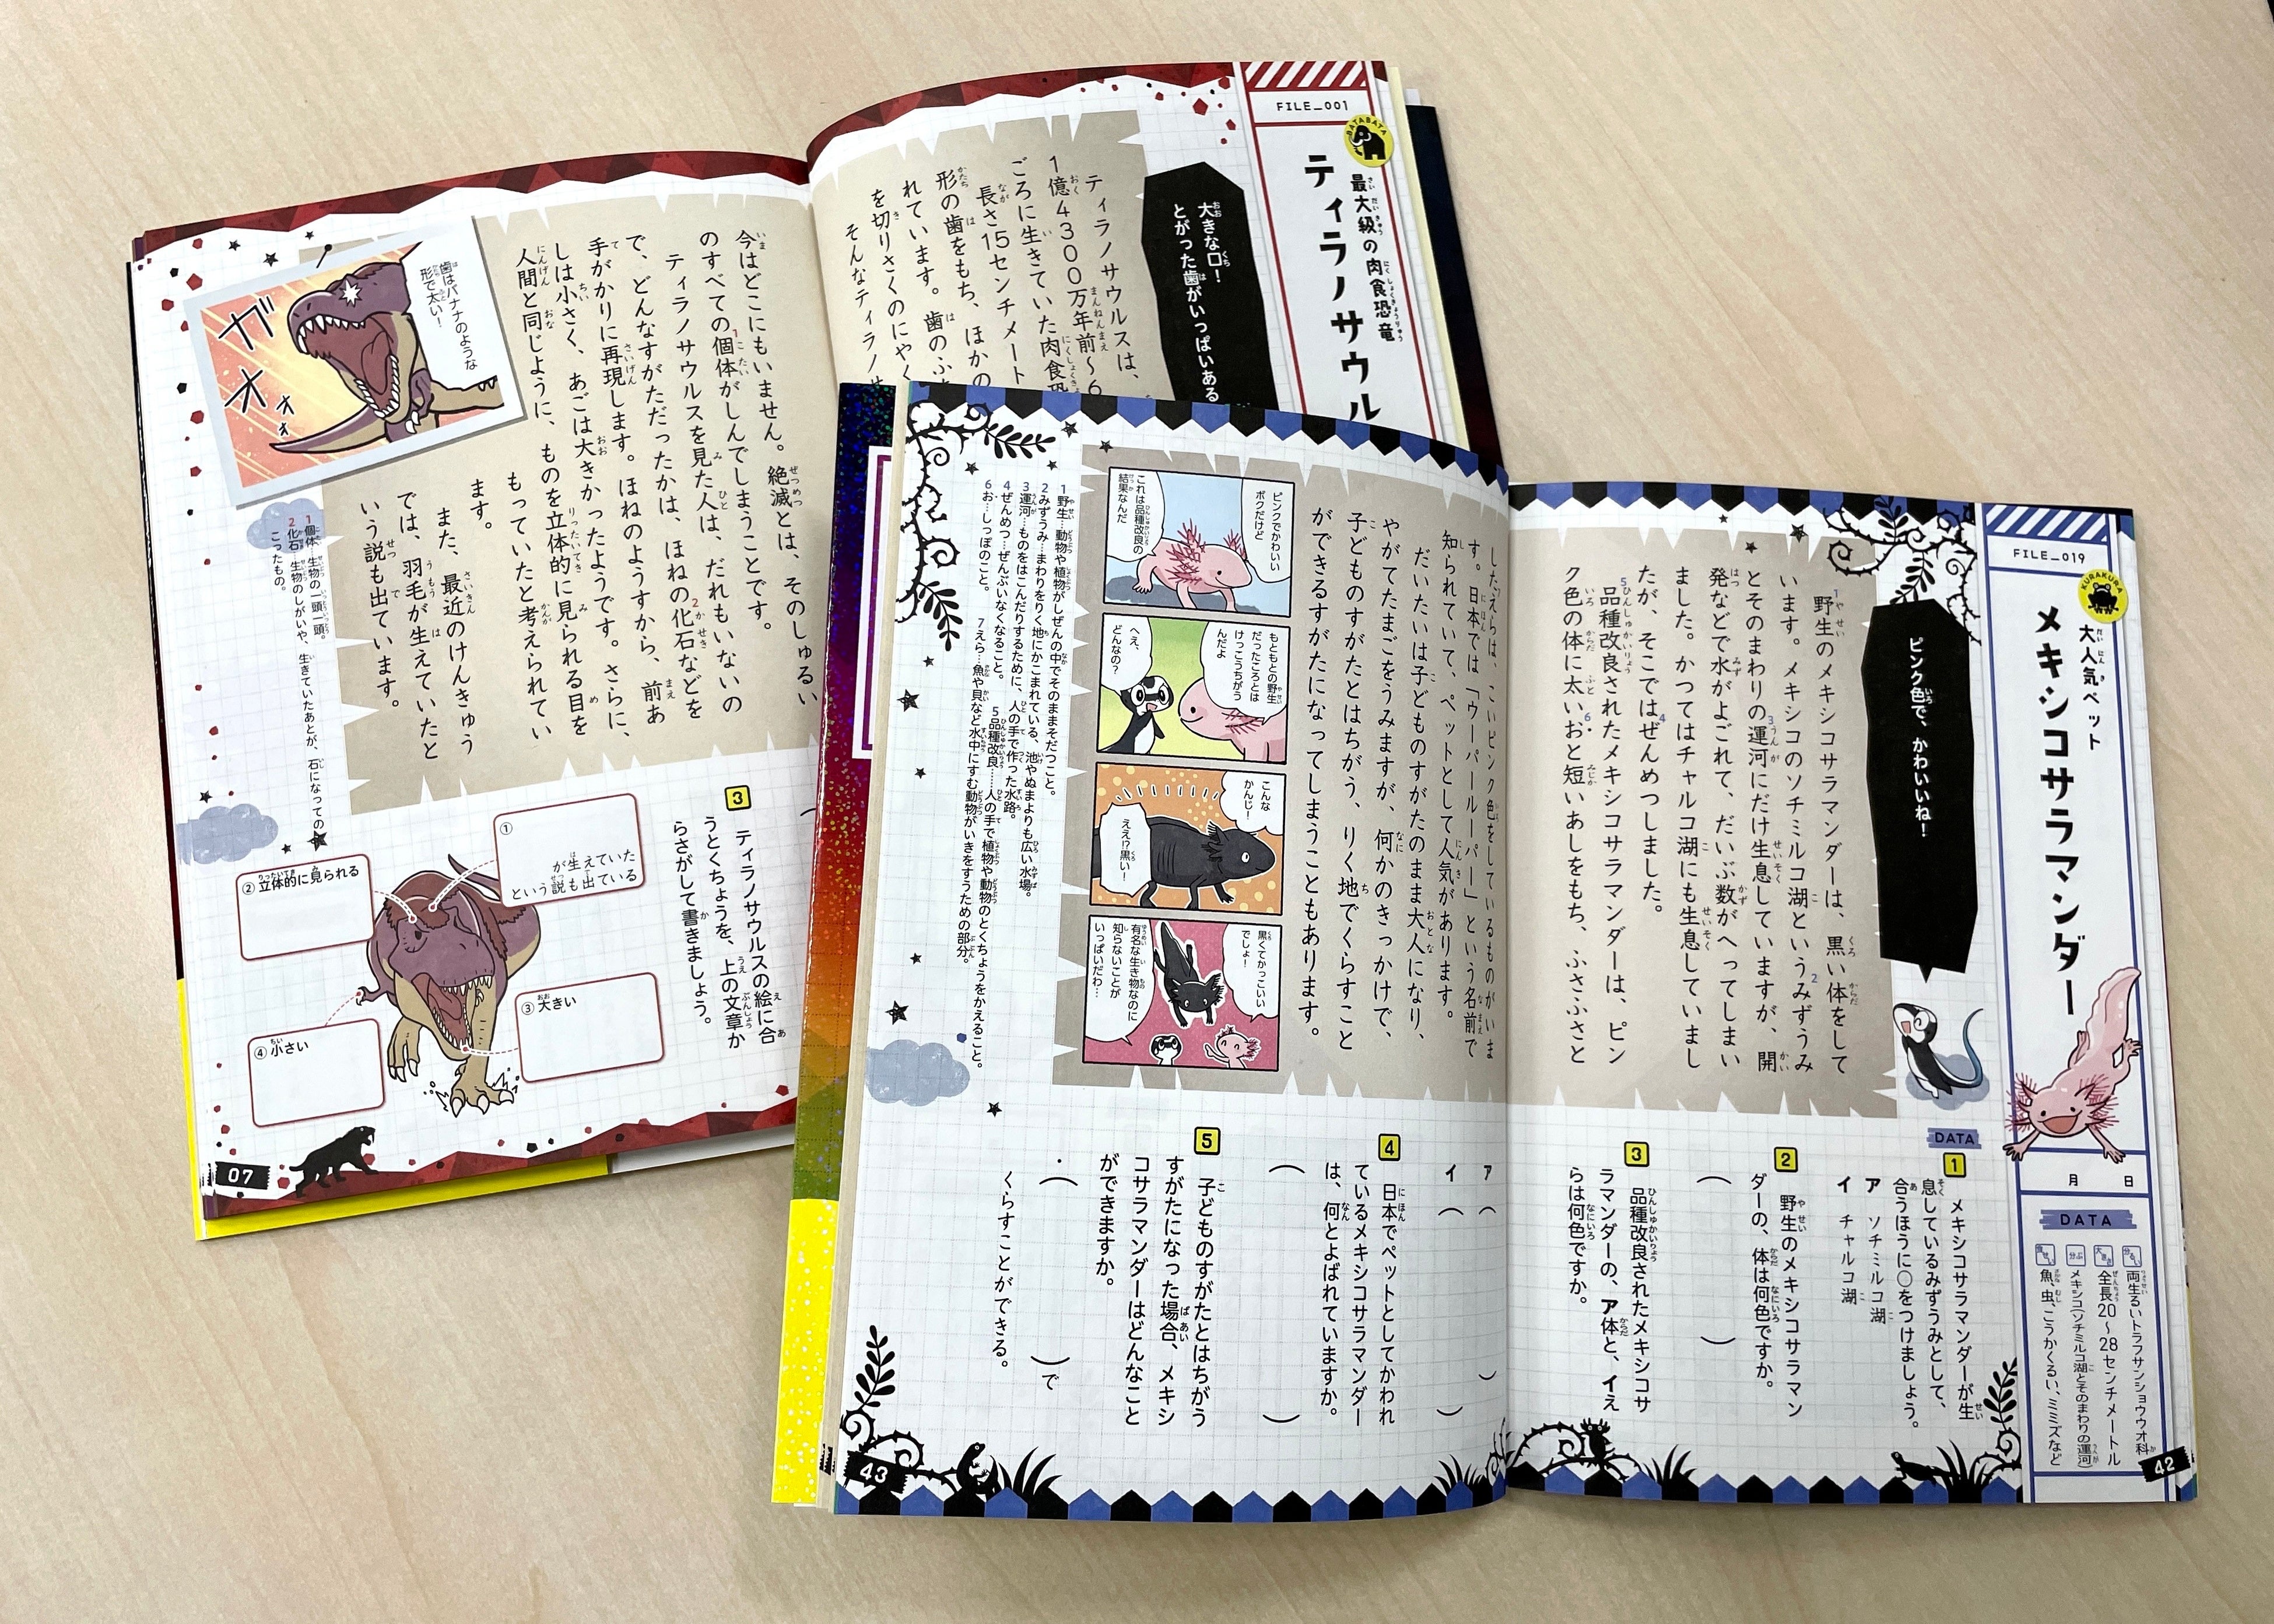 FILE_001
BATABATA
最大級の肉食恐竜
ティラノサウル
大きな口!
とがった歯がいっぱいある
ティラノサウルスは、
1億4300万年前～6
ごろに生きていた肉食恐
長さ15センチメート
形の歯をもち、ほかの
れています。歯のふ
を切りさくのにやく
そんなティラノサ
今はどこにもいません。絶滅とは、そのしゅるい
のすべての個体がしんでしまうことです。
ティラノサウルスを見た人は、だれもいないの
で、どんなすがただったかは、ほねの化石などを
手がかりに再現します。ほねのようすから、前あ
しは小さく、あごは大きかったようです。さらに、
人間と同じように、ものを立体的に見られる目を
もっていたと考えられてい
ます。
また、最近のけんきゅう
では、羽毛が生えていたと
いう説も出ています。
歯はバナナのような
形で太い!
ガオォォ
1 個体…生物の一頭一頭。
2 化石…生物のしがいや、生きていたあとが、石になってのこったもの。
3 ティラノサウルスの絵に合
うとくちょうを、上の文章か
らさがして書きましょう。
①
が生えていた
という説も出ている
②立体的に見られる
③大きい
④小さい
07
FILE_019
KURAKURA
大人気ペット
メキシコサラマンダー
月 日
DATA
両生るいトラフサンショウウオ科
全長20～28センチメートル
メキシコ(ソチミルコ湖とそのまわりの運河)
魚、虫、こうかくるい、ミミズなど
ピンク色で、かわいいね!
野生のメキシコサラマンダーは、黒い体をして
います。メキシコのソチミルコ湖というみずうみ
とそのまわりの運河にだけ生息していますが、開
発などで水がよごれて、だいぶ数がへってしまい
ました。かつてはチャルコ湖にも生息していまし
たが、そこではぜんめつしました。
品種改良されたメキシコサラマンダーは、ピン
ク色の体に太いおと短いあしをもち、ふさふさと
したえらは、こいピンク色をしているものがいま
す。日本では「ウーパールーパー」という名前で
知られていて、ペットとして人気があります。
だいたいは子どものすがたのまま大人になり、
やがてたまごをうみますが、何かのきっかけで、
子どものすがたとはちがう、りく地でくらすこと
ができるすがたになってしまうこともあります。
ピンクでかわいい
ボクだけど
これは品種改良の
結果なんだ
もともとの野生
だったころとは
けっこうちがう
んだよ
へえ、
どんなの?
こんな
かんじ!
ええ!?黒い!
黒くてかっこいい
でしょ!
有名な生き物なのに
知らないことが
いっぱいだわ…
1 野生…動物や植物がしぜんの中でそのままそだつこと。
2 みずうみ…まわりをりく地にかこまれている、池やぬまよりも広い水場。
3 運河…ものをはこんだりするために、人の手で作った水路。
4 ぜんめつ…ぜんぶいなくなること。
5 品種改良……人の手で植物や動物のとくちょうをかえること。
6 お…しっぽのこと。
7 えら…魚や貝など水中にすむ動物がいきをすうための部分。
DATA
1 メキシコサラマンダーが生
息しているみずうみとして、
合うほうに〇をつけましょう。
ア ソチミルコ湖
イ チャルコ湖
2 野生のメキシコサラマン
ダーの、体は何色ですか。
( )
3 品種改良されたメキシコサ
ラマンダーの、ア体と、イえ
らは何色ですか。
ア( )
イ( )
4 日本でペットとしてかわれ
ているメキシコサラマンダー
は、何とよばれていますか。
( )
5 子どものすがたとはちがう
すがたになった場合、メキシ
コサラマンダーはどんなこと
ができますか。
・( )で
くらすことができる。
43
42